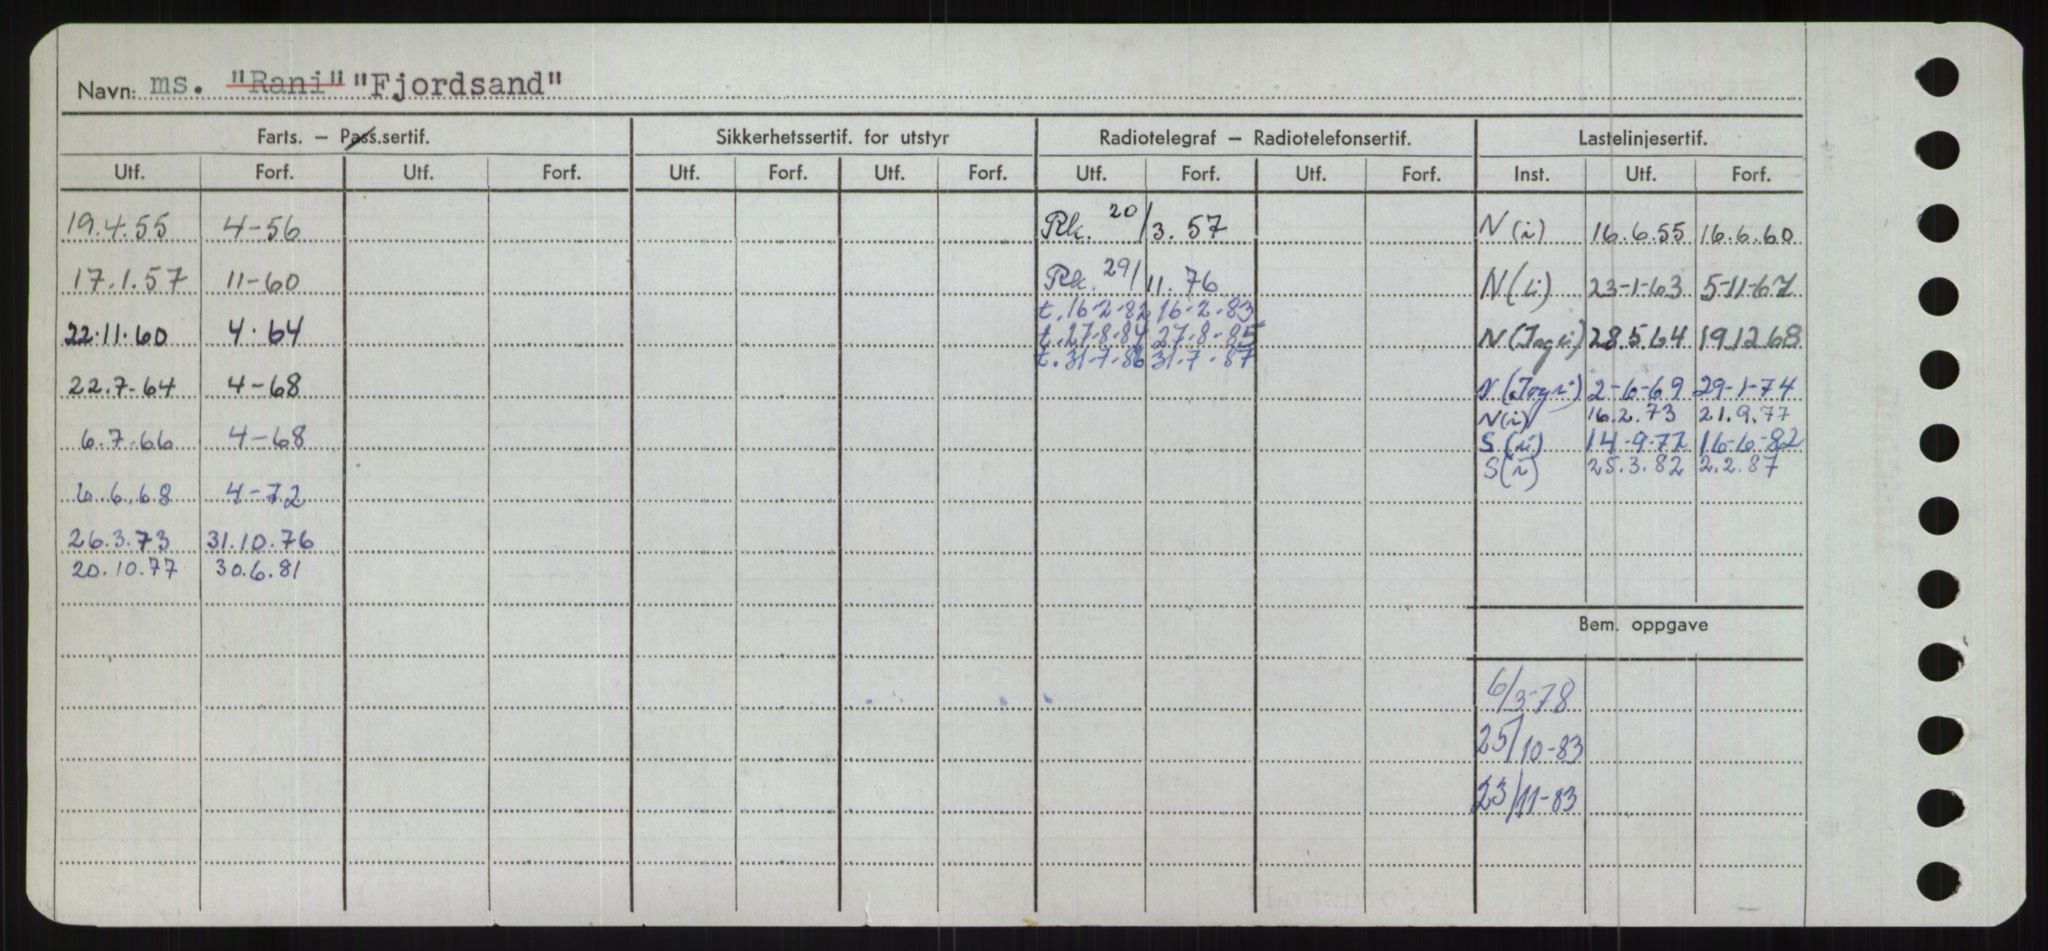 Navn: ms. "Rani" "Fjordsand"
Farts. — Pass.sertif. Sikkerhetssertif. for utstyr Radiotelegraf — Radiotelefonsertif. Lastelinjesertif.
Utf. Forf. Utf. Forf. Utf. Forf. Utf. Forf. Utf. Forf. Utf. Forf. Inst. Utf. Forf.
19.4.55 4-56 Rk. 20/3.57 N(i) 16.6.55 16.6.60
17.1.57 11-60 Rk. 29/11.76 N(i) 23-1-63 5-11-67
t. 16-2-82 16-2-83
22.11.60 4.64 t. 27-8-84 27-8-85 N 28.5.64 19.12.68
t. 31-7-86 31-7-87
22.7-64 4-68 N 2-6-69 29-1-74
N(i) 16.2.73 21.9.77
6.7.66 4-68 S(i) 14-9-77 16-6-82
S(i) 25.3.82 2.2.87
6.6.68 4-72
26.3.73 31.10.76
20.10.77 30.6.81
Bem. oppgave
6/3-78
25/10-83
23/11-83